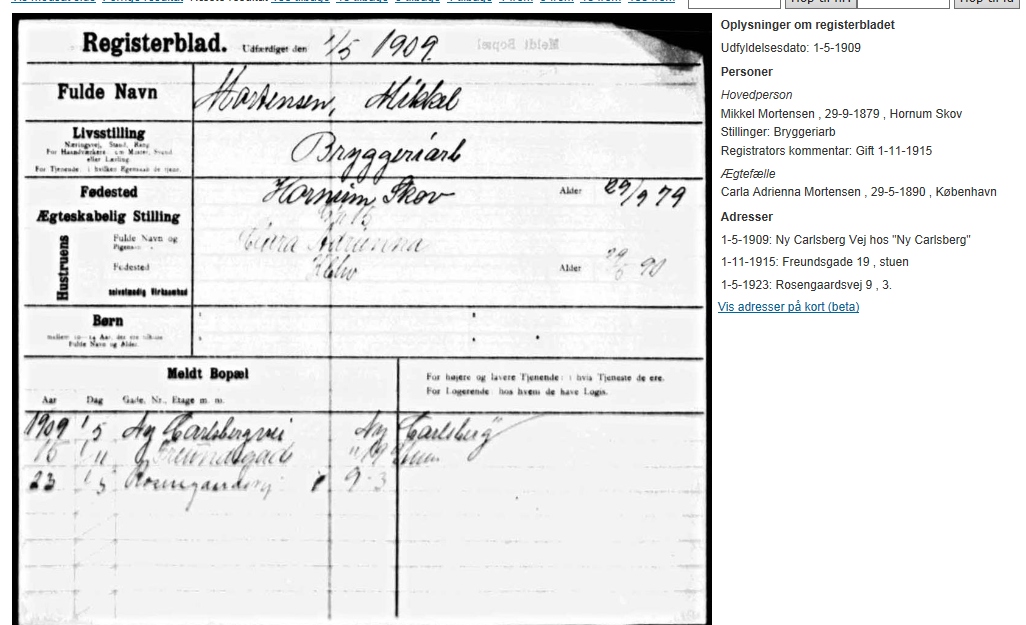 Registerblad. Udfærdiget den 1/5 1909.
Fulde Navn
Mortensen, Mikkel
Livsstilling
Næringsvej, Stand, Rang
eller Lærling.
Bryggeriarb
Fødested
Hornum Skov
Alder 29/9 79
Ægteskabelig Stilling
Hustruens
Fulde Navn og
Adrianna
Fødested
Kbhv
Alder 29/5 90
selvstændig Virksomhed
Børn
Fulde Navn og Alder.
Meldt Bopæl
For højere og lavere Tjenende: i hvis Tjeneste de ere.
For Logerende: hos hvem de have Logis.
Aar Dag Gade, Nr., Etage m. m.
1909 1/5 Ny Carlsbergvei Ny Carlsberg
15 1/11 Freundsgade 19 Stuen
23 1/5 Rosengaardsvej 9 3
Oplysninger om registerbladet
Udfyldelsesdato: 1-5-1909
Personer
Hovedperson
Mikkel Mortensen , 29-9-1879 , Hornum Skov
Stillinger: Bryggeriarb
Registrators kommentar: Gift 1-11-1915
Ægtefælle
Carla Adrienna Mortensen , 29-5-1890 , København
Adresser
1-5-1909: Ny Carlsberg Vej hos "Ny Carlsberg"
1-11-1915: Freundsgade 19 , stuen
1-5-1923: Rosengaardsvej 9 , 3.
Vis adresser på kort (beta)